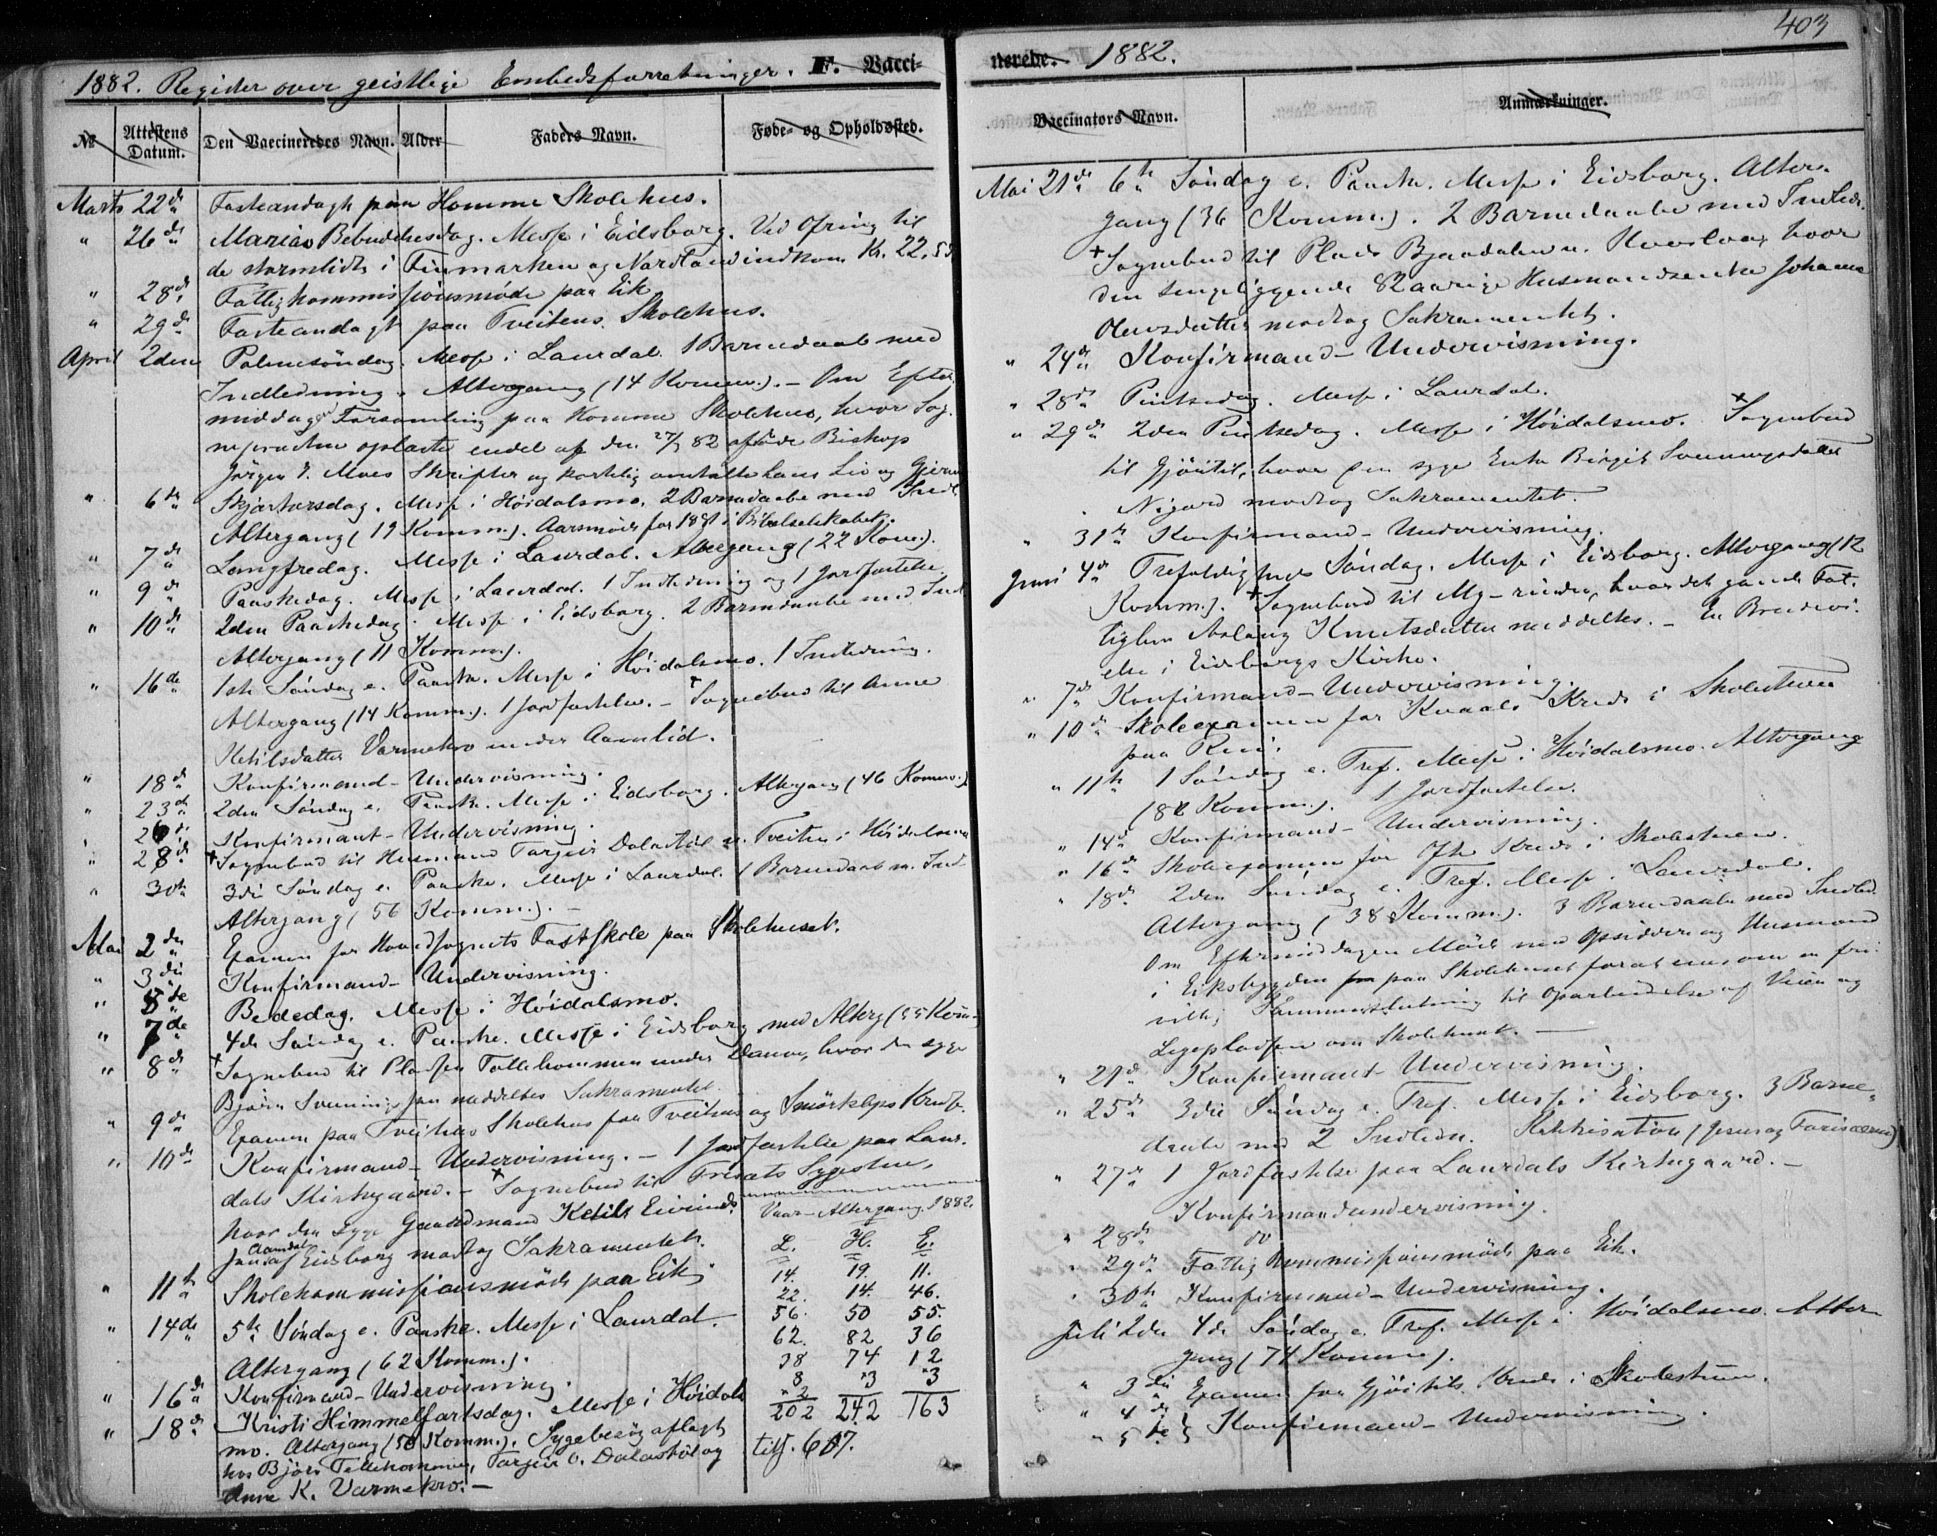 403
1882. Register over geistlige Embedsforretninger. F. Vacci-
nerede. 1882.
№ Attestens Datum. Den Vaccineredes Navn. Alder Faders Navn. Føde- og Opholdssted.
Vaccinators Navn. Anmærkninger.
Marts 22de Fasteandagt paa Homme Skolehus.
" 26de Marias Bebudelsesdag. Messe i Eidsborg. Ved Ofring til
de stormlidte i Finmarken og Nordland indkom Kr. 22,53
" 28de Fattigkommissionsmøde paa Eik
" 29de Fasteandagt paa Tveitens Skolehus.
April 2den Palmesøndag. Messe i Laurdal. 1 Barnedaab med
Indledning. Altergang (14 Komm.). – Om Efter-
middagen Forsamling paa Homme Skolehus, hvor Sog-
nepræsten oplæste endel af den 27/3 82 afdøde Biskop
Jørgen I. Moes Skrifter og kortelig omtalte hans Liv og Gjern
" 6te Skjærtorsdag. Messe i Høidalsmo. 2 Barnedaabe med Indl.
Altergang (19 Komm.). Aarsmøde for 1881 i Bibelselskabet.
" 7de Langfredag. Messe i Laurdal. Altergang (22 Kom.).
" 9de Paaskedag. Messe i Laurdal. 1 Indledning og 1 Jordfæstelse.
" 10de 2den Paaskedag. Messe i Eidsborg. 2 Barnedaabe med Indl
Altergang (11 Komm.).
" 16de 1ste Søndag e. Paaske. Messe i Høidalsmo. 1 Indledning.
Altergang (14 Komm.). 1 Jordfæstelse. – + Sognebud til Anne
Ketilsdatter Varmekro under Aamlid.
" 18de Konfirmand-Undervisning.
" 23de 2den Søndag e. Paaske. Messe i Eidsborg. Altergang (46 Komm.)
" 26de Konfirmant-Undervisning.
" 28de + Sognebud til Husmand Targeir Dalastøl u. Tveiten i Høidalsmo
" 30te 3die Søndag e. Paaske. Messe i Laurdal. 1 Barnedaab m. Indl
Altergang (56 Komm.). –
Mai 2den Examen for Hovedsognets Fastskole paa Skolehuset.
" 3die Konfirmand-Undervisning.
" 5te Bededag. Messe i Høidalsmo.
" 7de 4de Søndag e. Paaske. Messe i Eidsborg med Alterg (55 Kom.)
" 8de + Sognebud til Pladsen Tellehommen under , hvor den syge
Bjørn Sveinungssen meddeltes Sakramentet.
" 9de Examen paa Tveitens Skolehus for Tveitens og Smørkleps Kreds.
" 10de Konfirmand-Undervisning. – 1 Jordfæstelse paa Laur-
dals Kirkegaard. – + Sognebud til Sygestue,
hvor den syge Gaardmand Ketil Eivinds-
sen Aamdal af Eidsborg modtog Sakramentet.
" 11te Skolekommissionsmøde paa Eik.
" 14de 5te Søndag e. Paaske. Messe i Laurdal.
Altergang (62 Komm.).
" 16de Konfirmand-Undervisning.
" 18de Kristi Himmelfartsdag. Messe i Høidals-
mo. Altergang (50 Komm.). Sygebesøg aflagt
hos Bjørn Tellehommen, Targeir O. Dalastøl og
Anne K. Varmekro. –
Vaar-Altergang 1882.
L. H. E.
14. 19. 11.
22. 14. 46.
56. 50 55.
62. 82 36
38 74 12
8 "3 "3
"2
202 242 163
tils. 607.
Mai 21de 6te Søndag e. Paaske. Messe i Eidsborg. Alter-
gang (36 Komm.). 2 Barnedaabe med Indled.
+ Sognebud til Plads Bjaadalen u. , hvor
den sengeliggende 82aarige Husmandsenke Johanne
Olavsdatter modtog Sakramentet.
" 24de Konfirmand-Undervisning.
" 28de Pintsedag. Messe i Laurdal.
" 29de 2den Pintsedag. Messe i Høidalsmo. + Sognebud
til Gjøitil, hvor den syge Enke Birgit Sveinungsdatter
Nigard modtog Sakramentet.
" 31te Konfirmand-Undervisning.
Juni 4de Trefoldigheds Søndag. Messe i Eidsborg. Altergang (12
Komm.). + Sognebud til , hvor det gamle Fat-
tiglem Aslaug Knutsdatter meddeltes. – En Brudevi-
else i Eidsborgs Kirke.
" 7de Konfirmand-Undervisning.
" 10de Skoleexamen for Kvaals Kreds i Skolestuen
paa Rui.
" 11te 1 Søndag e. Tref. Messe i Høidalsmo. Altergang
(82 Komm.). 1 Jordfæstelse.
" 14de Konfirmand-Undervisning.
" 16de Skoleexamen for Kreds i Skolestuen.
" 18de 2den Søndag e. Tref. Messe i Laurdal.
Altergang (38 Komm.). 3 Barnedaabe med Indled.
Om Eftermiddagen Møde med Opsiddere og Husmænd
i Eiksbygden paa Skolehuset forat enes om en fri-
villig Sammenslutning til Oparbeidelse af Veien og
Legepladsen om Skolehuset. –
" 21de Konfirmant Undervisning.
" 25de 3die Søndag e. Tref. Messe i Eidsborg. 3 Barne-
daabe med 2 Indledn. Katekisation (Jesus og Farisæerne)
" 27de 1 Jordfæstelse paa Laurdals Kirkegaard. –
Konfirmandundervisning.
" 28de do
" 29de Fattigkommissionsmøde paa Eik.
" 30te Konfirmand-Undervisning.
Juli 2den 4de Søndag e. Tref. Messe i Høidalsmo. Alter-
gang (74 Komm.).
" 3die Examen for Gjøitils Kreds i Skolestuen.
" 4de
" 5te } Konfirmand-Undervisning.